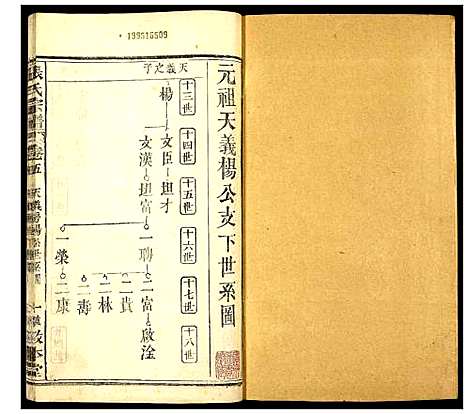 199515509
元祖天義楊公支下世系圖
十三世
十四世
十五世
十六世
十七世
十八世
天義之子
楊 文臣 坦才
文漢 坦富 一聘 二富 啟淦
二貴
二林
二壽
一榮 二康
張氏宗譜 卷五 天義房楊公世系圖
敦本堂